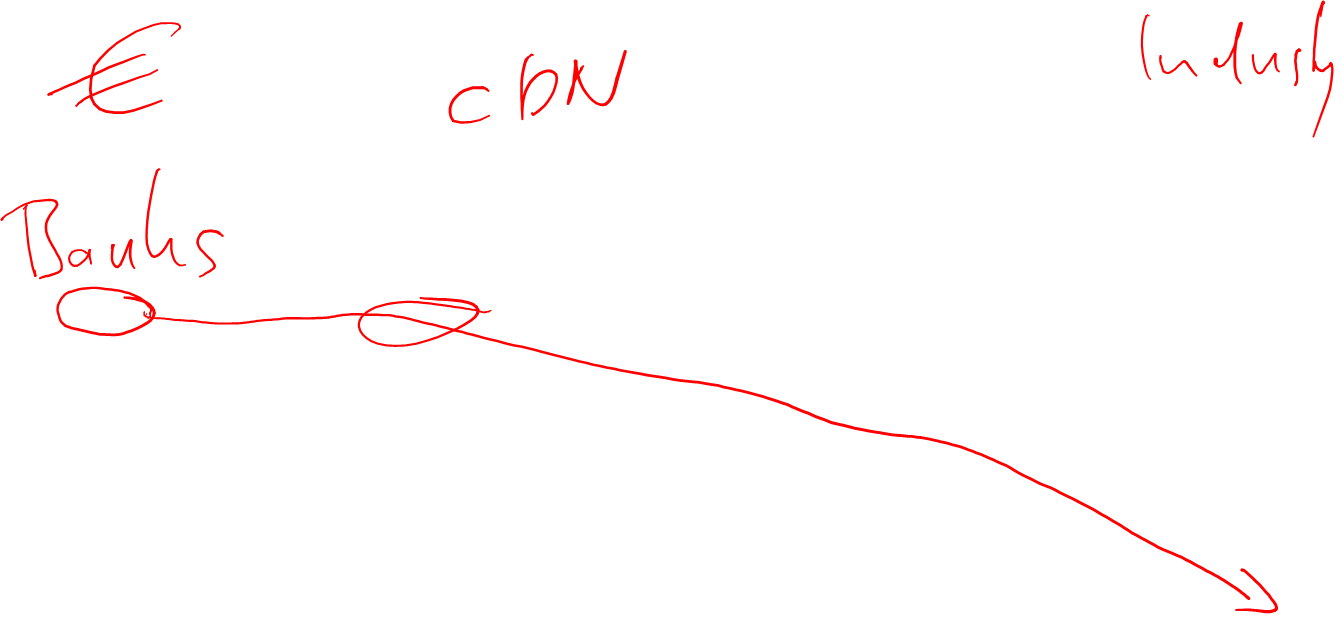 € CDN Industry
Banks